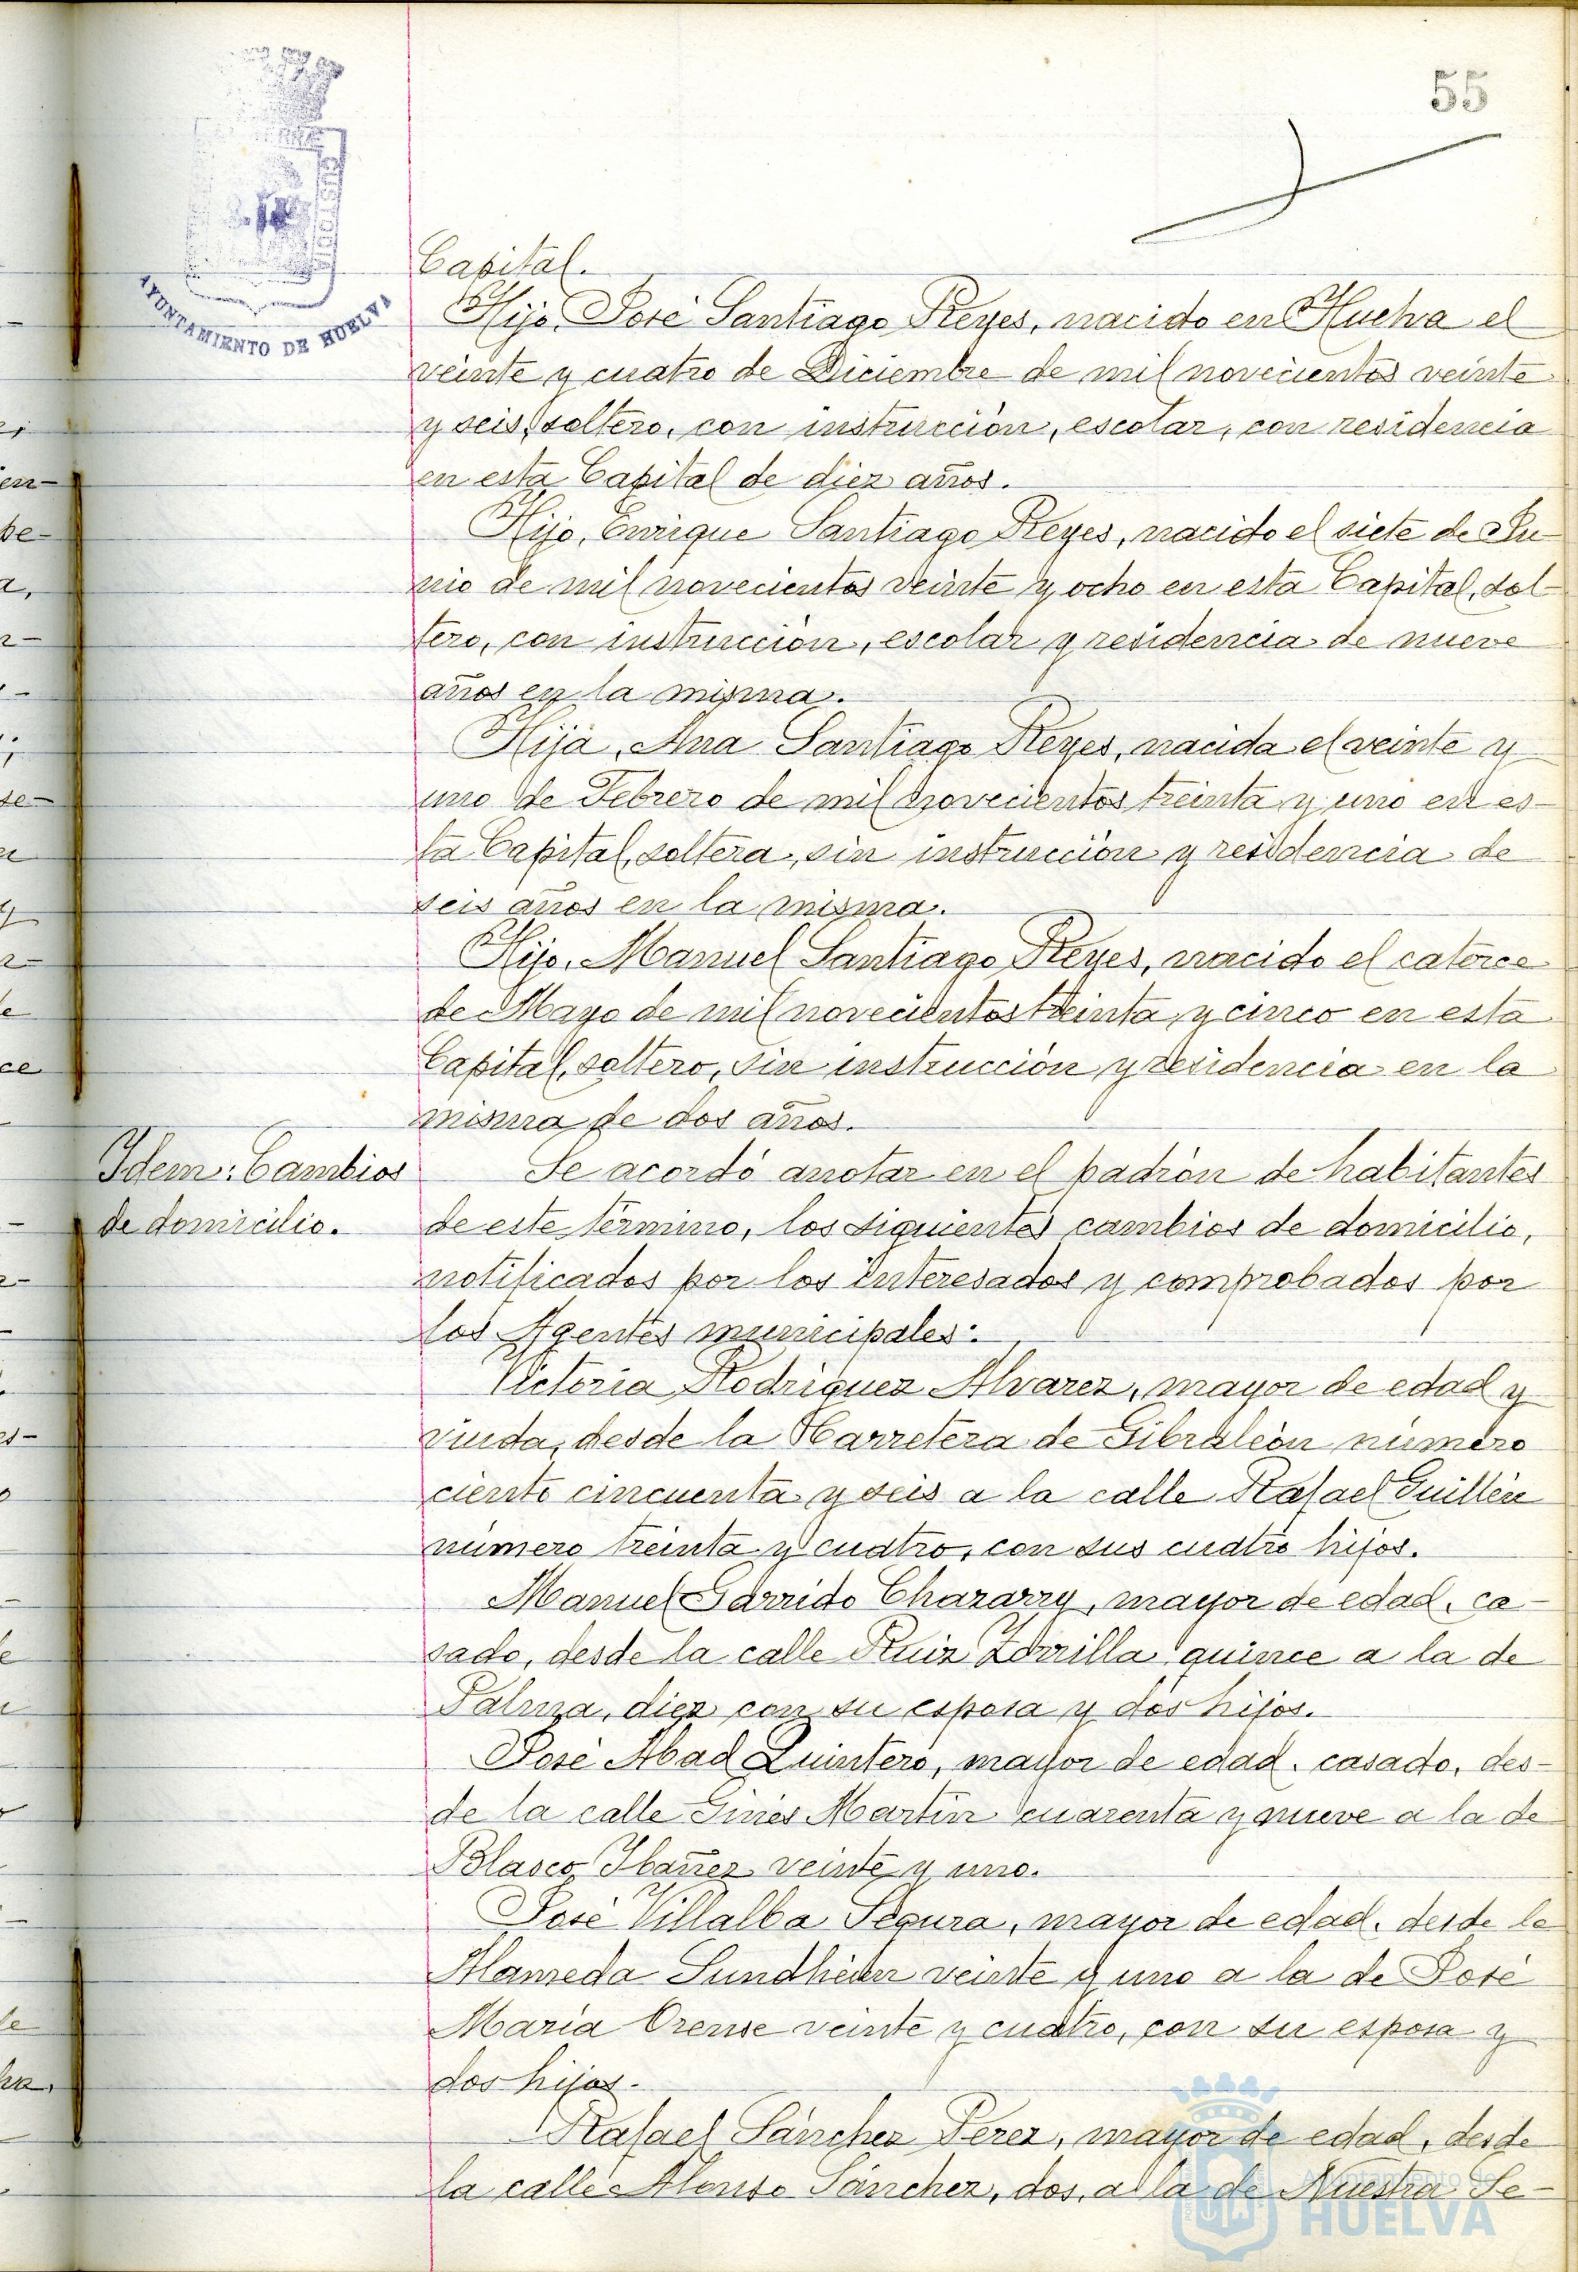 55
AYUNTAMIENTO DE HUELVA
Capital.
Hijo, José Santiago Reyes, nacido en Huelva el
veinte y cuatro de Diciembre de mil novecientos veinte
y seis, soltero, con instrucción, escolar, con residencia
en esta Capital de diez años.
Hijo, Enrique Santiago Reyes, nacido el siete de Ju-
nio de mil novecientos veinte y ocho en esta Capital, sol-
tero, con instrucción, escolar y residencia de nueve
años en la misma.
Hija, Ana Santiago Reyes, nacida el veinte y
uno de Febrero de mil novecientos treinta y uno en es-
ta Capital, soltera, sin instrucción y residencia de
seis años en la misma.
Hijo, Manuel Santiago Reyes, nacido el catorce
de Mayo de mil novecientos treinta y cinco en esta
Capital, soltero, sin instrucción y residencia en la
misma de dos años.
Idem: Cambios
de domicilio.
Se acordó anotar en el padrón de habitantes
de este término, los siguientes cambios de domicilio,
notificados por los interesados y comprobados por
los Agentes municipales:
Victoria Rodríguez Alvarez, mayor de edad y
viuda, desde la Carretera de Gibraleón número
ciento cincuenta y seis a la calle Rafael Guillén
número treinta y cuatro, con sus cuatro hijos.
Manuel Garrido Chararry, mayor de edad, ca-
sado, desde la calle Ruiz Zorrilla quince a la de
Palma, diez con su esposa y dos hijos.
José Abad Quintero, mayor de edad, casado, des-
de la calle Ginés Martín cuarenta y nueve a la de
Blasco Ibañez veinte y uno.
José Villalba Segura, mayor de edad, desde la
Alameda Sundheim veinte y uno a la de José
María Orense veinte y cuatro, con su esposa y
dos hijos.
Rafael Sánchez Perez, mayor de edad, desde
la calle Alonso Sánchez, dos, a la de Nuestra Se-
Ayuntamiento de
HUELVA